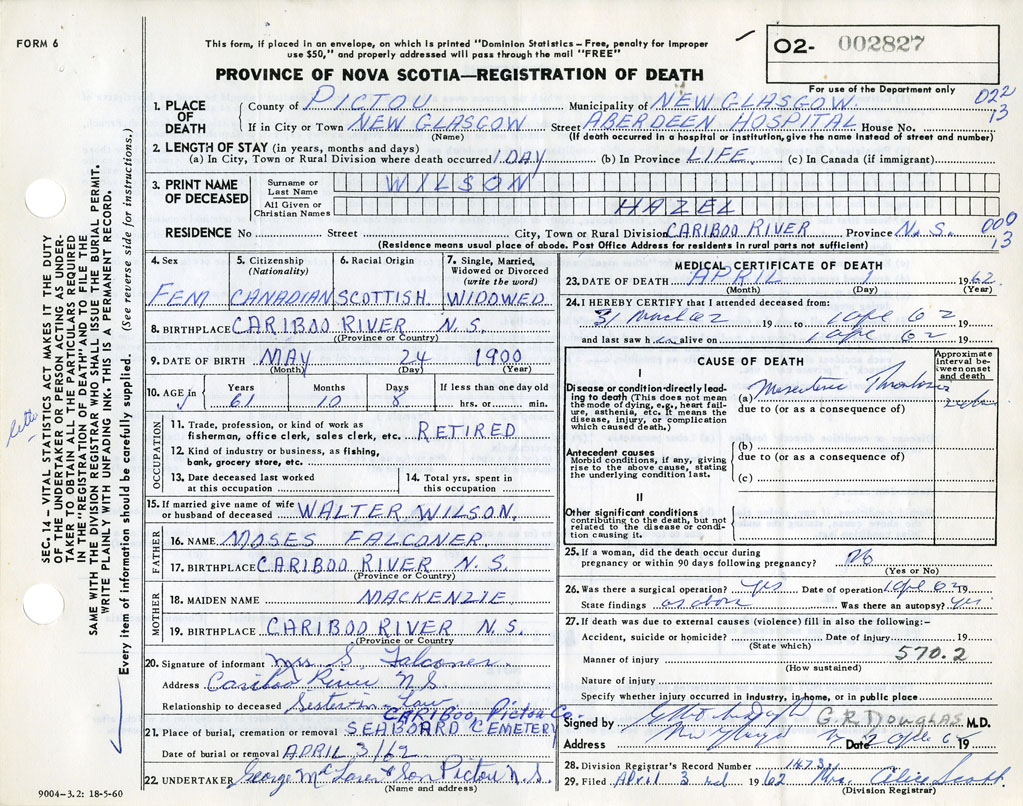 FORM 6
This form, if placed in an envelope, on which is printed "Dominion Statistics – Free, penalty for improper
use $50," and properly addressed will pass through the mail "FREE"
O2- 002827
PROVINCE OF NOVA SCOTIA—REGISTRATION OF DEATH
For use of the Department only
1. PLACE OF DEATH
County of PICTOU Municipality of NEW GLASGOW 022
If in City or Town NEW GLASGOW Street ABERDEEN HOSPITAL House No. 13
(Name) (If death occurred in a hospital or institution, give the name instead of street and number)
2. LENGTH OF STAY (in years, months and days)
(a) In City, Town or Rural Division where death occurred 1 DAY (b) In Province LIFE (c) In Canada (if immigrant)
3. PRINT NAME OF DECEASED
Surname or Last Name WILSON
All Given or Christian Names HAZEL
RESIDENCE No Street City, Town or Rural Division CARIBOO RIVER Province N.S. 000
13
(Residence means usual place of abode. Post Office Address for residents in rural parts not sufficient)
4. Sex FEM
5. Citizenship (Nationality) CANADIAN
6. Racial Origin SCOTTISH
7. Single, Married, Widowed or Divorced (write the word) WIDOWED
8. BIRTHPLACE CARIBOO RIVER N.S.
(Province or Country)
9. DATE OF BIRTH MAY 24 1900
(Month) (Day) (Year)
10. AGE In Years 61 Months 10 Days 8 If less than one day old hrs. or min.
OCCUPATION
11. Trade, profession, or kind of work as
fisherman, office clerk, sales clerk, etc. RETIRED
12. Kind of industry or business, as fishing,
bank, grocery store, etc.
13. Date deceased last worked
at this occupation
14. Total yrs. spent in
this occupation
15. If married give name of wife
or husband of deceased WALTER WILSON
FATHER
16. NAME MOSES FALCONER
17. BIRTHPLACE CARIBOO RIVER N.S.
(Province or Country)
MOTHER
18. MAIDEN NAME MACKENZIE
19. BIRTHPLACE CARIBOO RIVER N.S.
(Province or Country
20. Signature of informant Mrs S. Falconer
Address Cariboo River N.S
Relationship to deceased Sister-in-Law
CARIBOO, Pictou Co.
21. Place of burial, cremation or removal SEABOARD CEMETERY
Date of burial or removal APRIL 3/62
22. UNDERTAKER George McLaren & Son Pictou N.S.
(Name and address)
MEDICAL CERTIFICATE OF DEATH
23. DATE OF DEATH APRIL 1 1962
(Month) (Day) (Year)
24. I HEREBY CERTIFY that I attended deceased from:
31 March 62 19 to 1 Apl 62 19
and last saw h alive on 1 Apl 62 19
CAUSE OF DEATH
Approximate interval between onset and death
I
Disease or condition directly leading to death (This does not
mean the mode of dying, e.g., heart failure, asthenia, etc. It means the
disease, injury, or complication which caused death.)
(a) Mesenteric Thrombosis
due to (or as a consequence of)
Antecedent causes
Morbid conditions, if any, giving rise to the above cause, stating
the underlying condition last.
(b)
due to (or as a consequence of)
(c)
II
Other significant conditions
contributing to the death, but not related to the disease or condition causing it.
25. If a woman, did the death occur during
pregnancy or within 90 days following pregnancy? No
(Yes or No)
26. Was there a surgical operation? yes Date of operation 1 Apl 62 19
State findings as above Was there an autopsy? yes
27. If death was due to external causes (violence) fill in also the following:-
Accident, suicide or homicide? Date of injury 19
(State which)
570.2
Manner of injury
(How sustained)
Nature of injury
Specify whether injury occurred in industry, in home, or in public place
Signed by G.R. DOUGLAS M.D.
Address Date 2 Apl 62 19
28. Division Registrar's Record Number
29. Filed April 3rd 1962 Mrs. Alice Scott
(Division Registrar)
SEC. 14 – VITAL STATISTICS ACT MAKES IT THE DUTY
OF THE UNDERTAKER OR PERSON ACTING AS UNDERTAKER
TO OBTAIN ALL THE PARTICULARS REQUIRED
IN THE "REGISTRATION OF DEATH" AND TO FILE THE
SAME WITH THE DIVISION REGISTRAR WHO SHALL ISSUE THE BURIAL PERMIT.
WRITE PLAINLY WITH UNFADING INK. THIS IS A PERMANENT RECORD.
Every item of information should be carefully supplied. (See reverse side for instructions.)
9004-3.2: 18-5-60